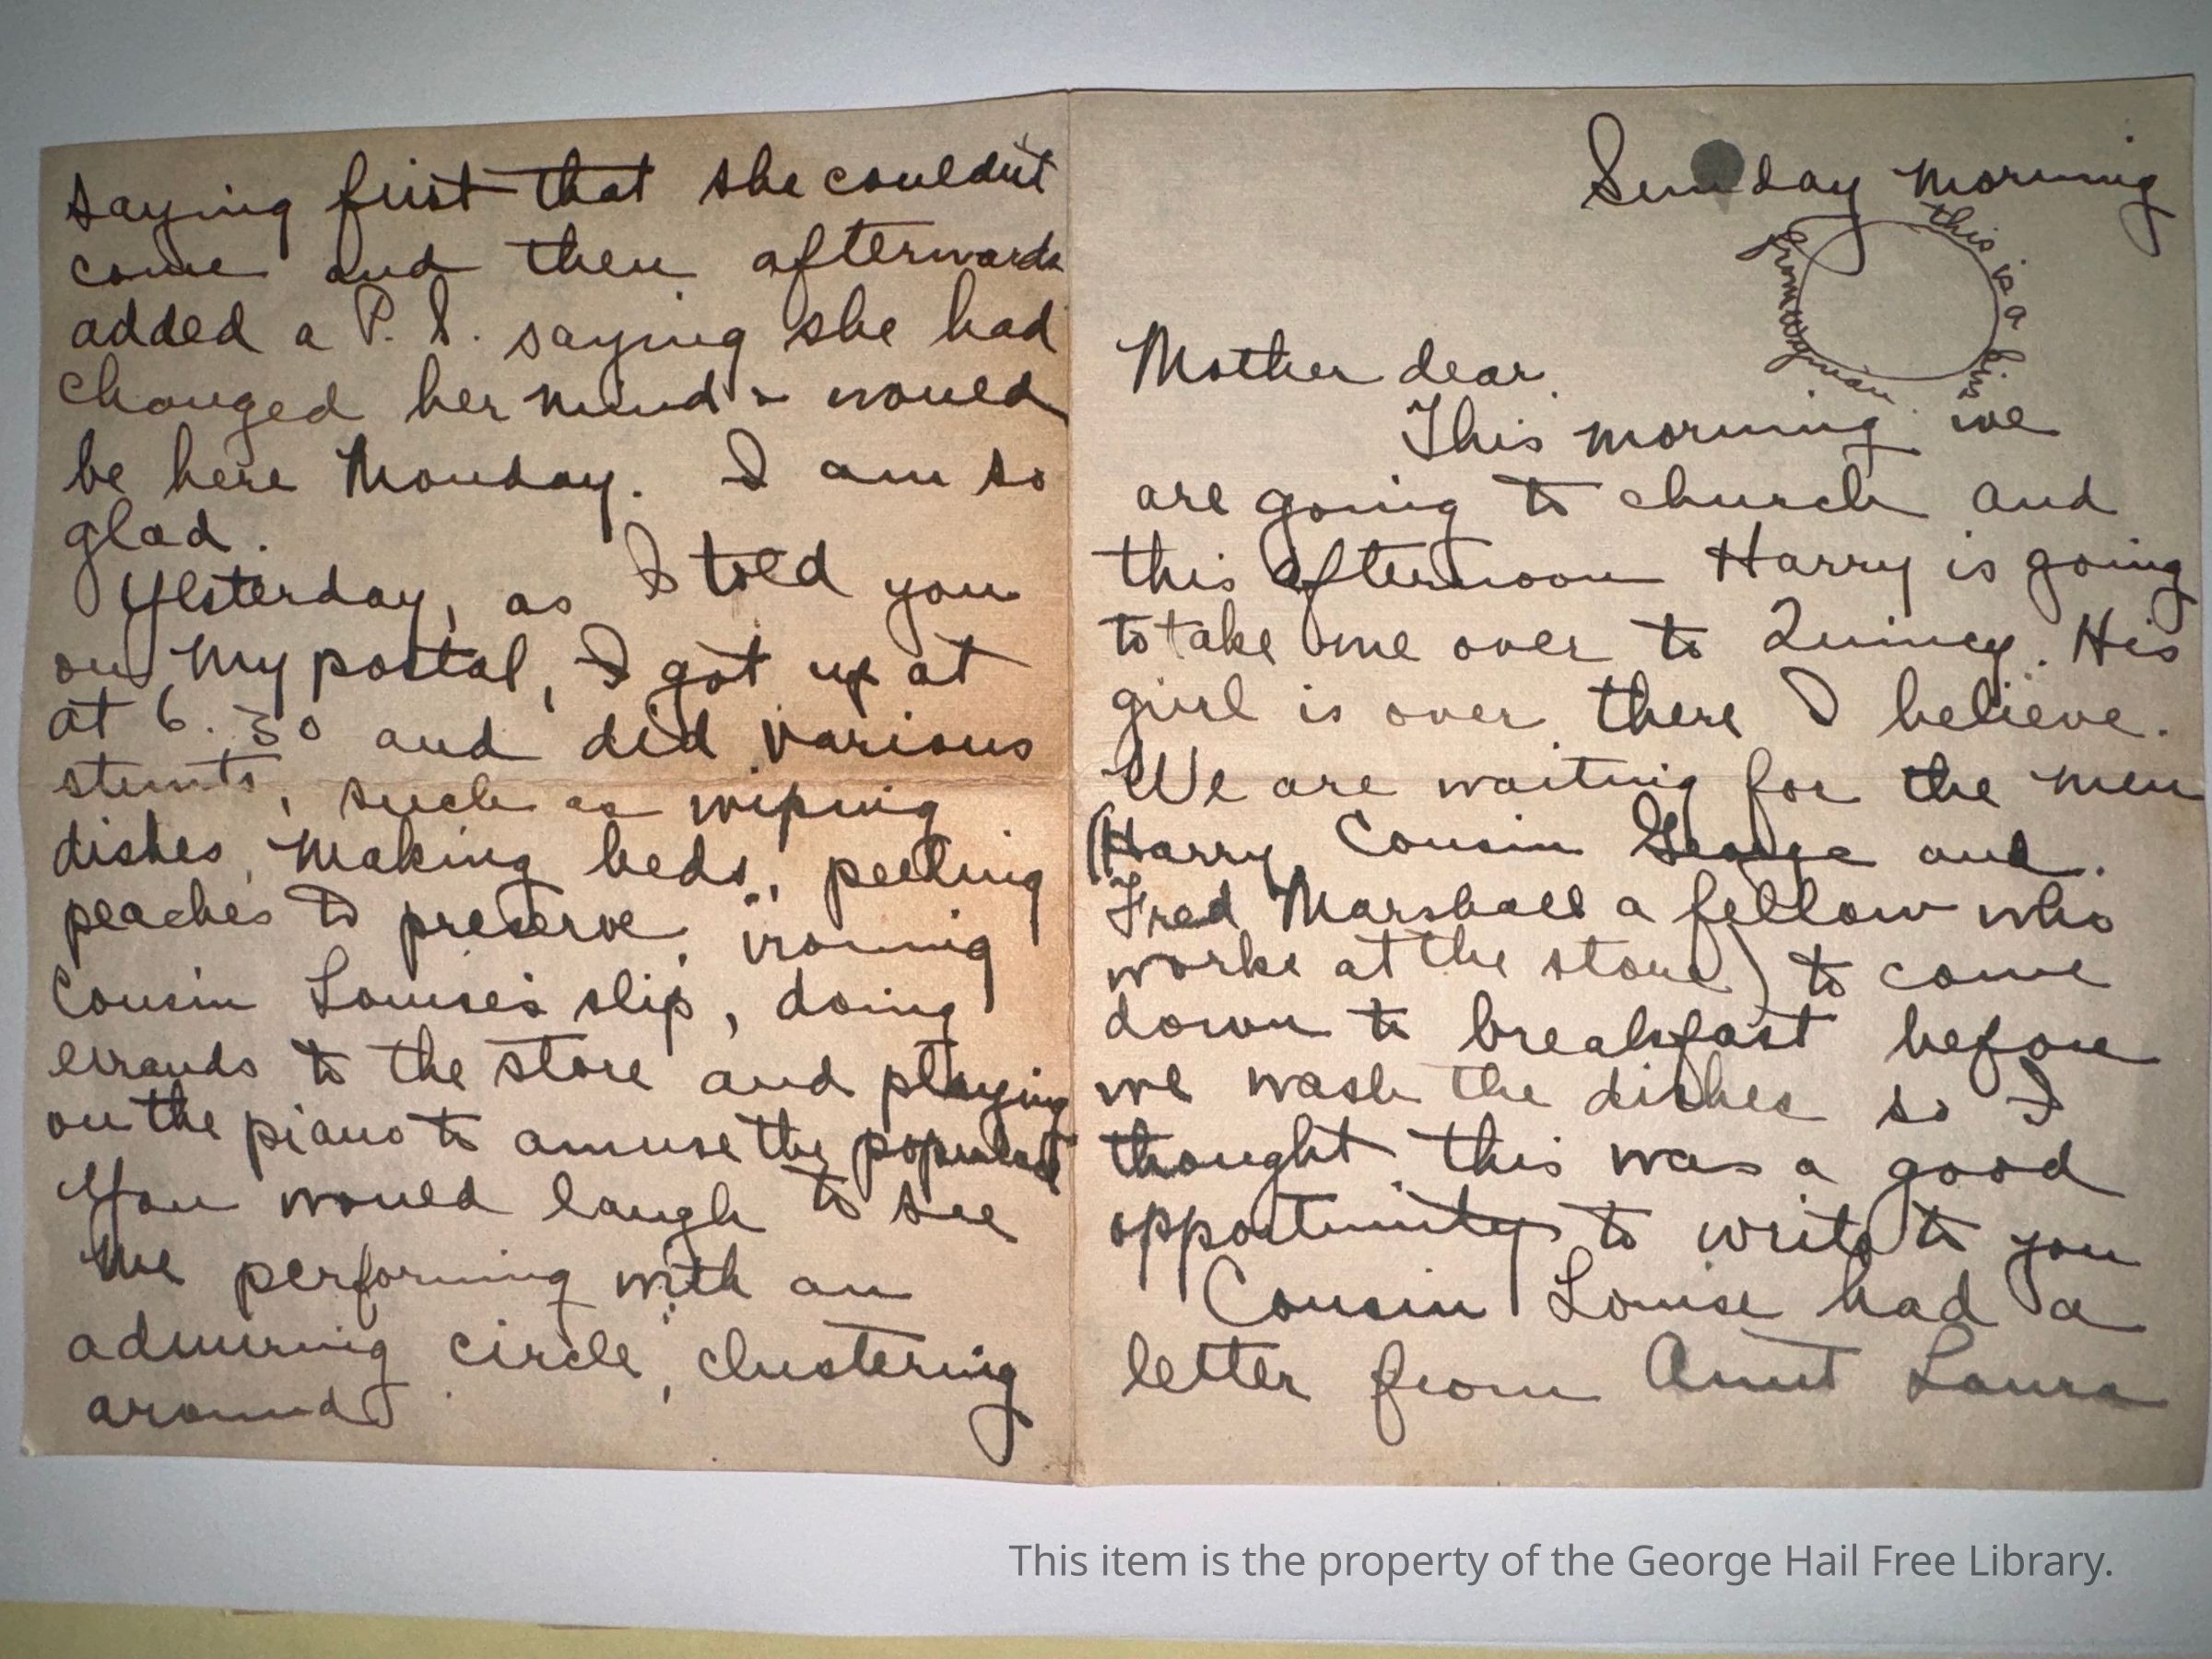 Sunday morning
this is a kiss
from
Mother dear.
This morning we
are going to church and
this afternoon Harry is going
to take me over to Quincy. His
girl is over there I believe.
We are waiting for the men
(Harry, Cousin George and
Fred Marshall a fellow who
works at the store) to come
down to breakfast before
we wash the dishes so I
thought this was a good
opportunity to write to you
Cousin Louise had a
letter from Aunt Laura
saying first that she couldn't
come and then afterwards
added a P. S. saying she had
changed her mind & would
be here Monday. I am so
glad.
Yesterday, as I told you
on my postal, I got up at
at 6.30 and did various
stunts, such as wiping
dishes, making beds, peeling
peaches to preserve, ironing
Cousin Louise's slip, doing
errands to the store and playing
on the piano to amuse the populace
You would laugh to see
me performing with an
admiring circle, clustering
around
This item is the property of the George Hail Free Library.